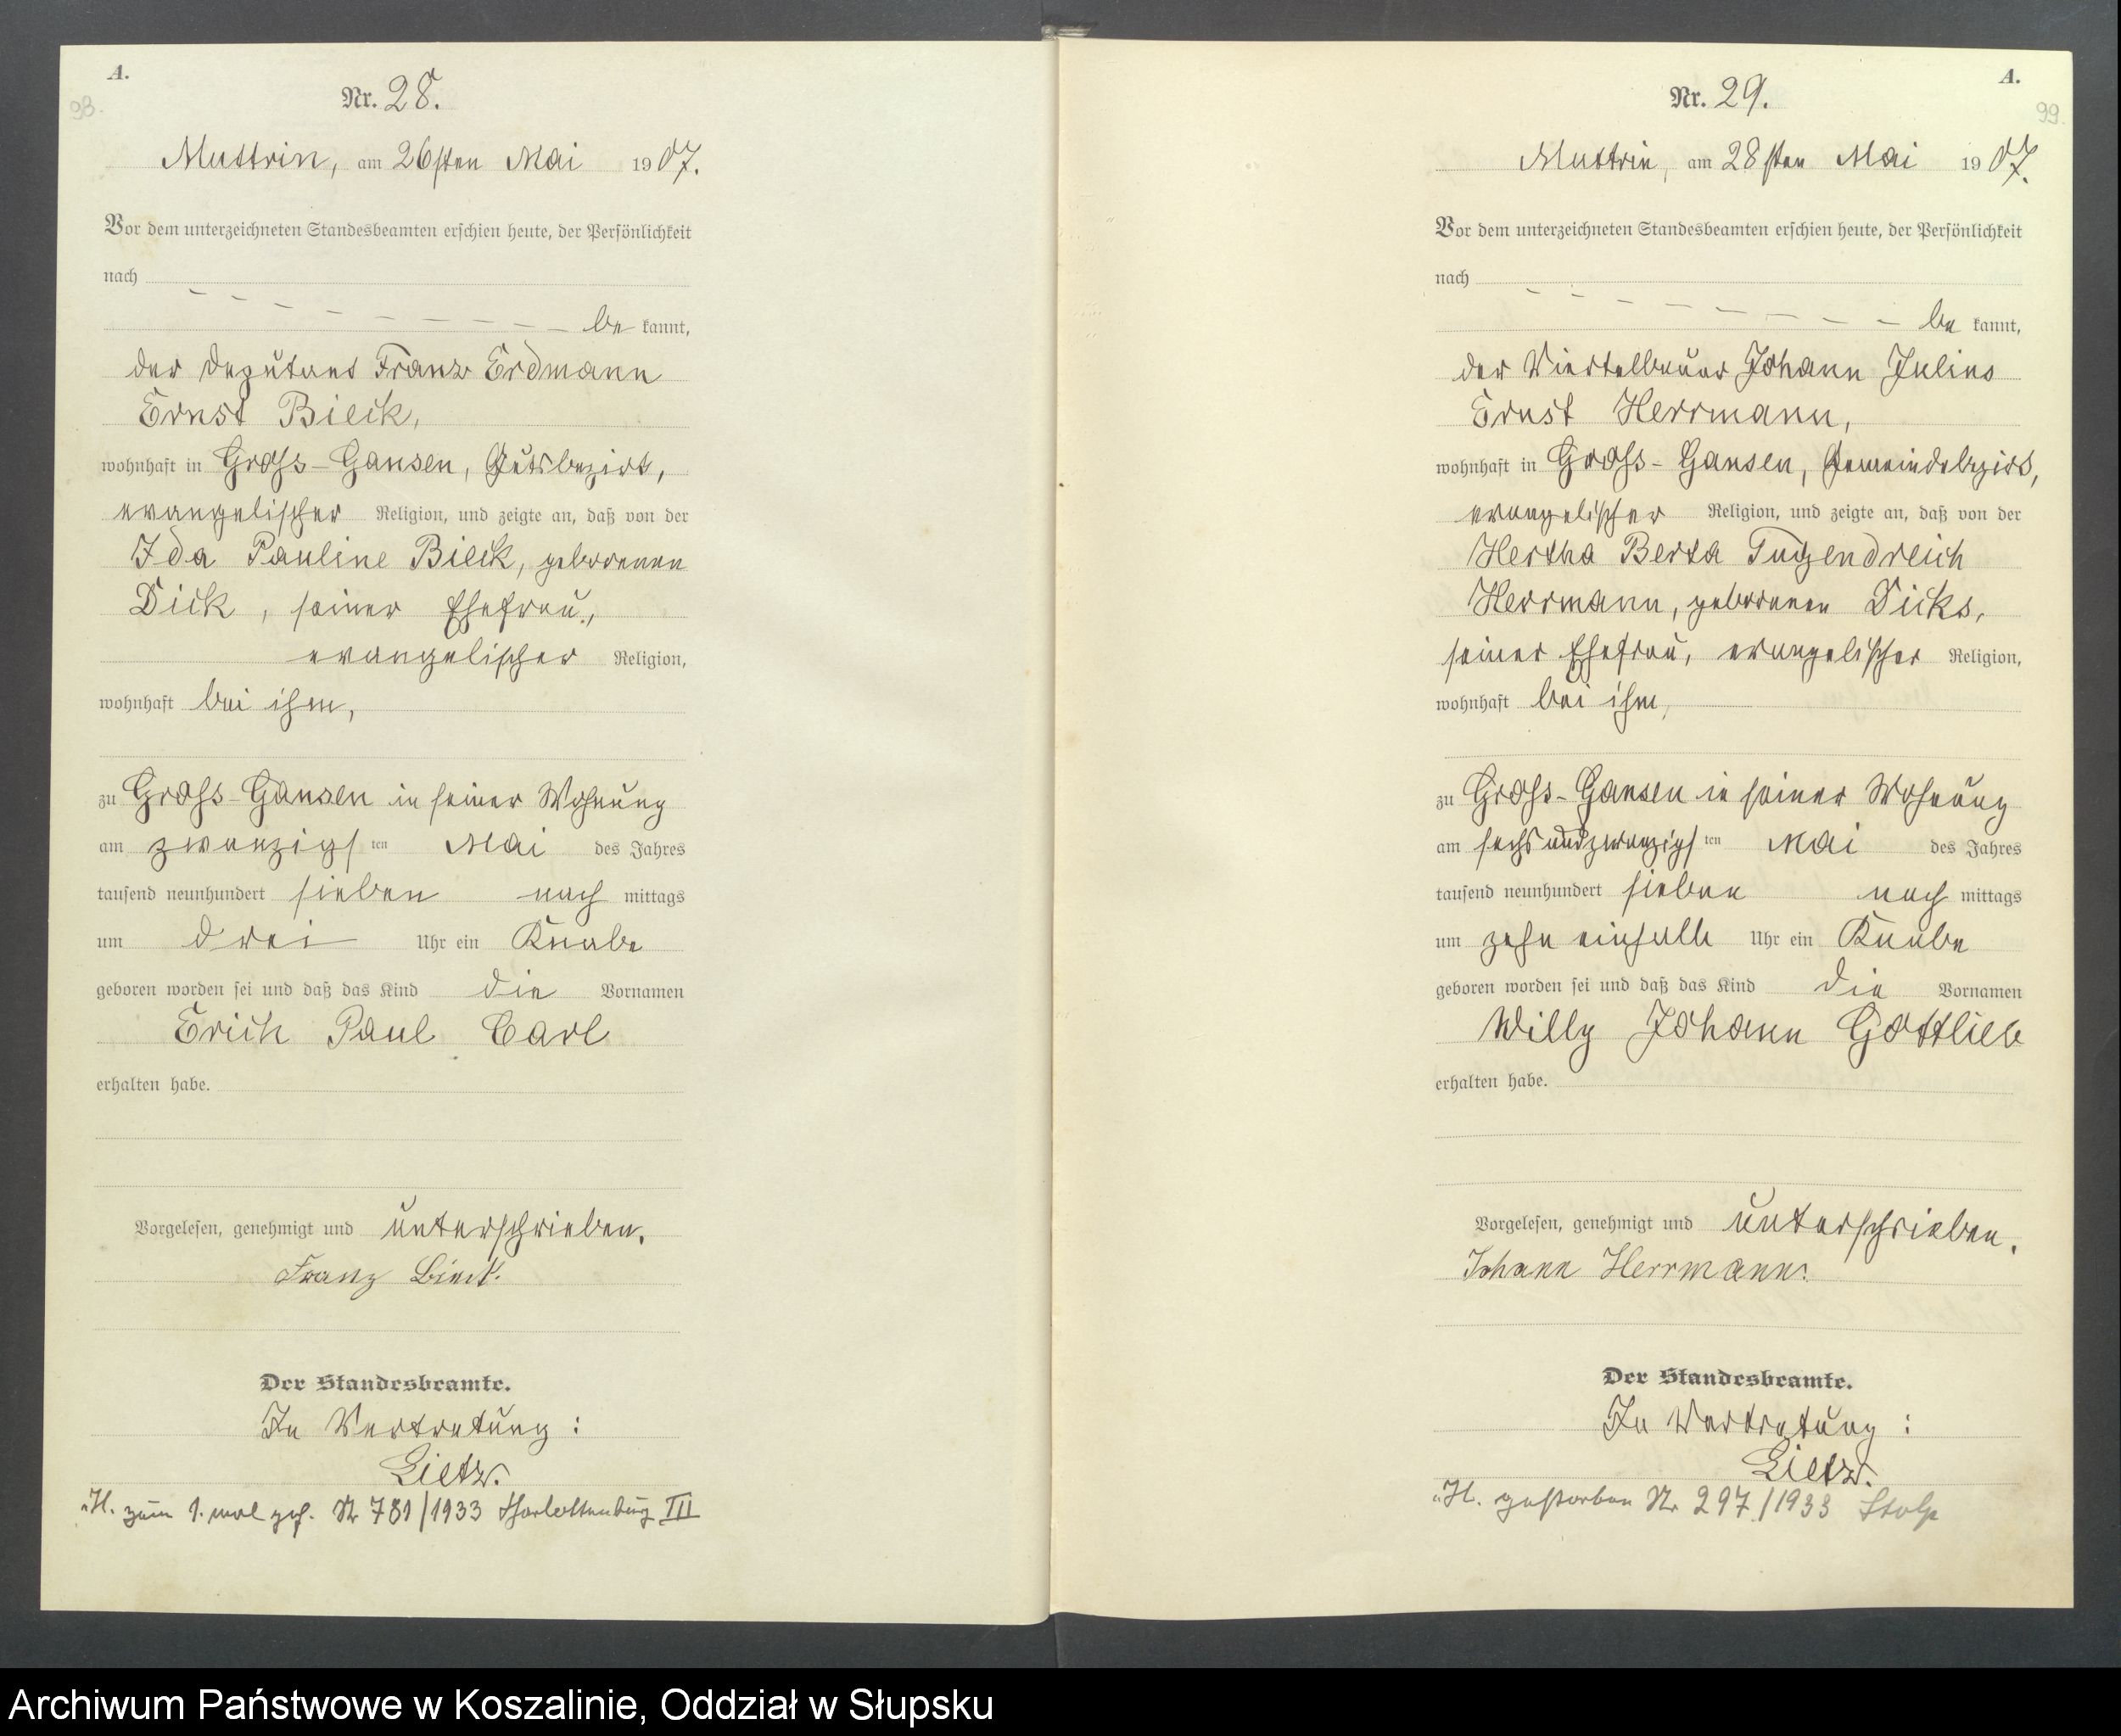 A.
98.
Nr. 28.
Muttrin, am 26sten Mai 1907.
Vor dem unterzeichneten Standesbeamten erschien heute, der Persönlichkeit
nach
be kannt,
der Deputant Franz Erdmann
Ernst Bieck,
wohnhaft in Groß-Gansen, Gutsbezirk,
evangelischer Religion, und zeigte an, daß von der
Ida Pauline Bieck, geborenen
Dick, seiner Ehefrau,
evangelischer Religion,
wohnhaft bei ihm,
zu Groß-Gansen in seiner Wohnung
am zwanzigsten Mai des Jahres
tausend neunhundert sieben nach mittags
um drei Uhr ein Knabe
geboren worden sei und daß das Kind die Vornamen
Erich Paul Carl
erhalten habe.
Vorgelesen, genehmigt und unterschrieben.
Franz Bieck.
Der Standesbeamte.
In Vertretung:
Lietz.
H. zum 1. mal geh. Nr 781/1933 Charlottenburg III
A.
99.
Nr. 29.
Muttrin, am 28sten Mai 1907.
Vor dem unterzeichneten Standesbeamten erschien heute, der Persönlichkeit
nach
be kannt,
der Viertelbauer Johann Julius
Ernst Herrmann,
wohnhaft in Groß-Gansen, Gemeindebezirk,
evangelischer Religion, und zeigte an, daß von der
Hertha Berta Tugendreich
Herrmann, geborenen Dicks,
seiner Ehefrau, evangelischer Religion,
wohnhaft bei ihm,
zu Groß-Gansen in seiner Wohnung
am sechsundzwanzigsten Mai des Jahres
tausend neunhundert sieben nach mittags
um zehn einhalb Uhr ein Knabe
geboren worden sei und daß das Kind die Vornamen
Willy Johann Gottlieb
erhalten habe.
Vorgelesen, genehmigt und unterschrieben.
Johann Herrmann.
Der Standesbeamte.
In Vertretung:
Lietz.
H. gestorben Nr 297/1933 Stolp
Archiwum Państwowe w Koszalinie, Oddział w Słupsku